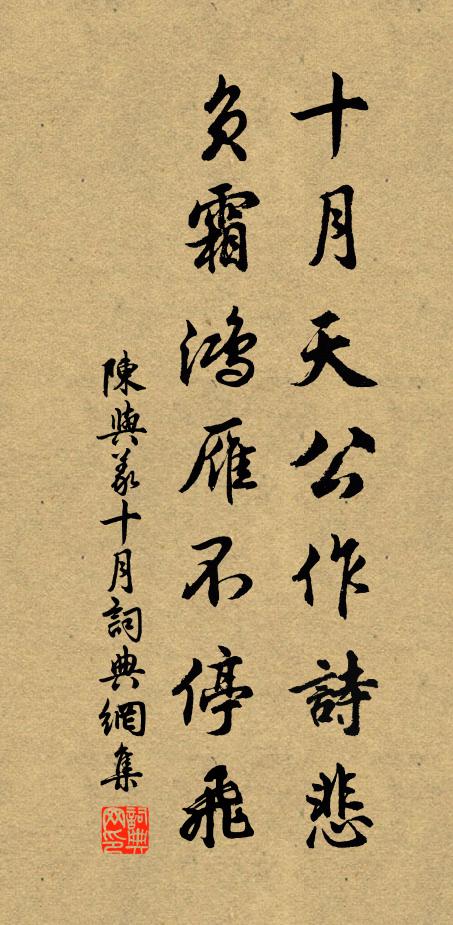 十月天公作詩悲
負霜鴻雁不停飛
陳與義十月詞典網集
詞典網印